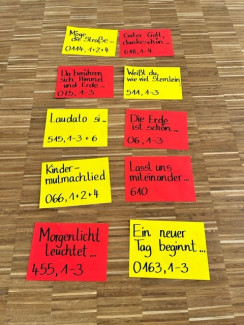 Möge
die Straße...
0114, 1+2+4
Guter Gott,
dankeschön...
618, 1-4
Da berühren
sich Himmel
und Erde...
075, 1-3
Weißt du,
wie viel Sternlein
511, 1-3
Laudato si...
515, 1-3 + 6
Die Erde
ist schön...
06, 1-3
Kinder-
mutmachlied
066, 1+2+4
Lasst uns
miteinander...
610
Morgenlicht
leuchtet...
455, 1-3
Ein neuer
Tag beginnt...
0163, 1-3